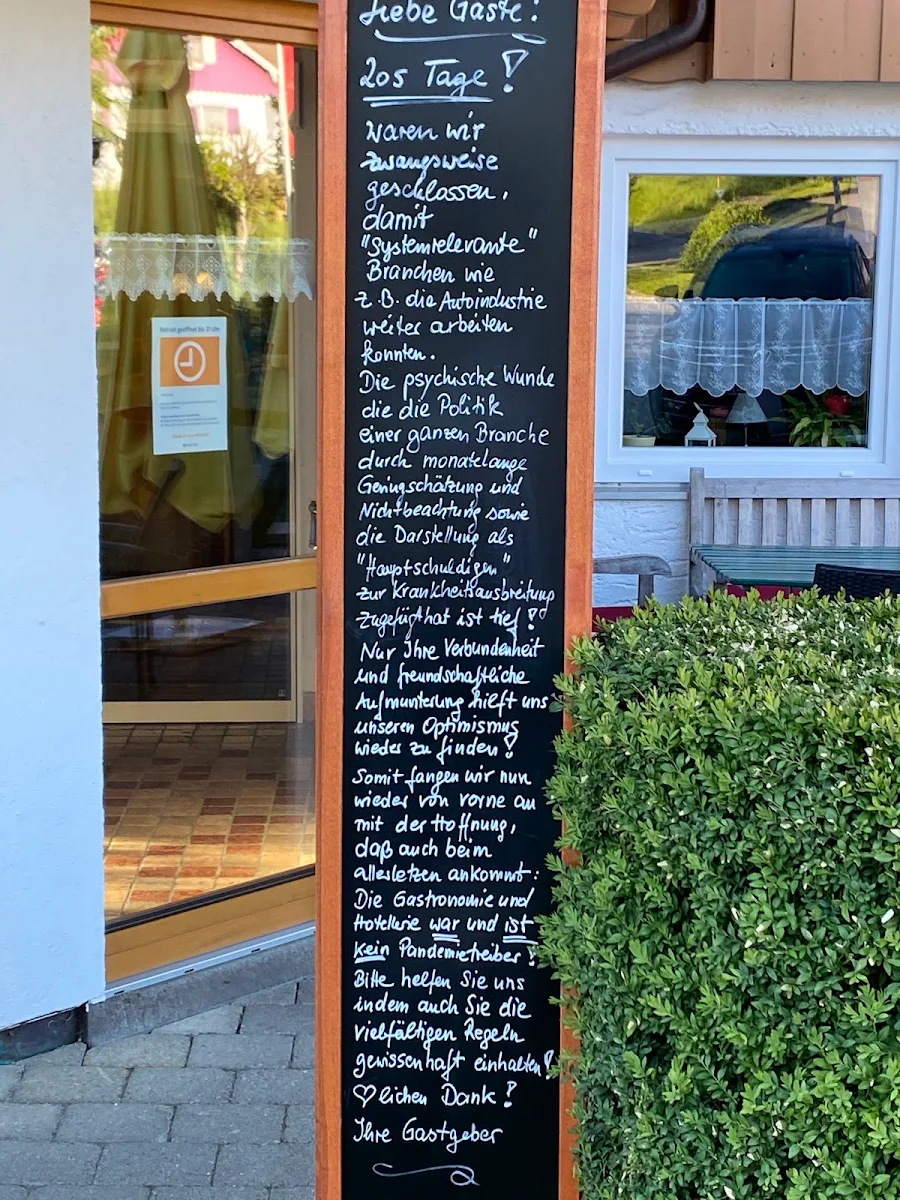 Liebe Gäste!
205 Tage!
waren wir
zwangsweise
geschlossen,
damit
"Systemrelevante"
Branchen wie
z.B. die Autoindustrie
weiter arbeiten
konnten.
Die psychische Wunde
die die Politik
einer ganzen Branche
durch monatelange
Geringschätzung und
Nichtbeachtung sowie
die Darstellung als
"Hauptschuldigen"
zur Krankheitsausbreitung
zugefügt hat ist tief!
Nur Ihre Verbundenheit
und freundschaftliche
Aufmunterung hilft uns
unseren Optimismus
wieder zu finden!
Somit fangen wir nun
wieder von vorne an
mit der Hoffnung,
daß auch beim
allerletzen ankommt:
Die Gastronomie und
Hotellerie war und ist
kein Pandemietreiber!
Bitte helfen Sie uns
indem auch Sie die
vielfältigen Regeln
gewissenhaft einhalten!
♡lichen Dank!
Ihre Gastgeber
Betrieb geöffnet bis 21 Uhr